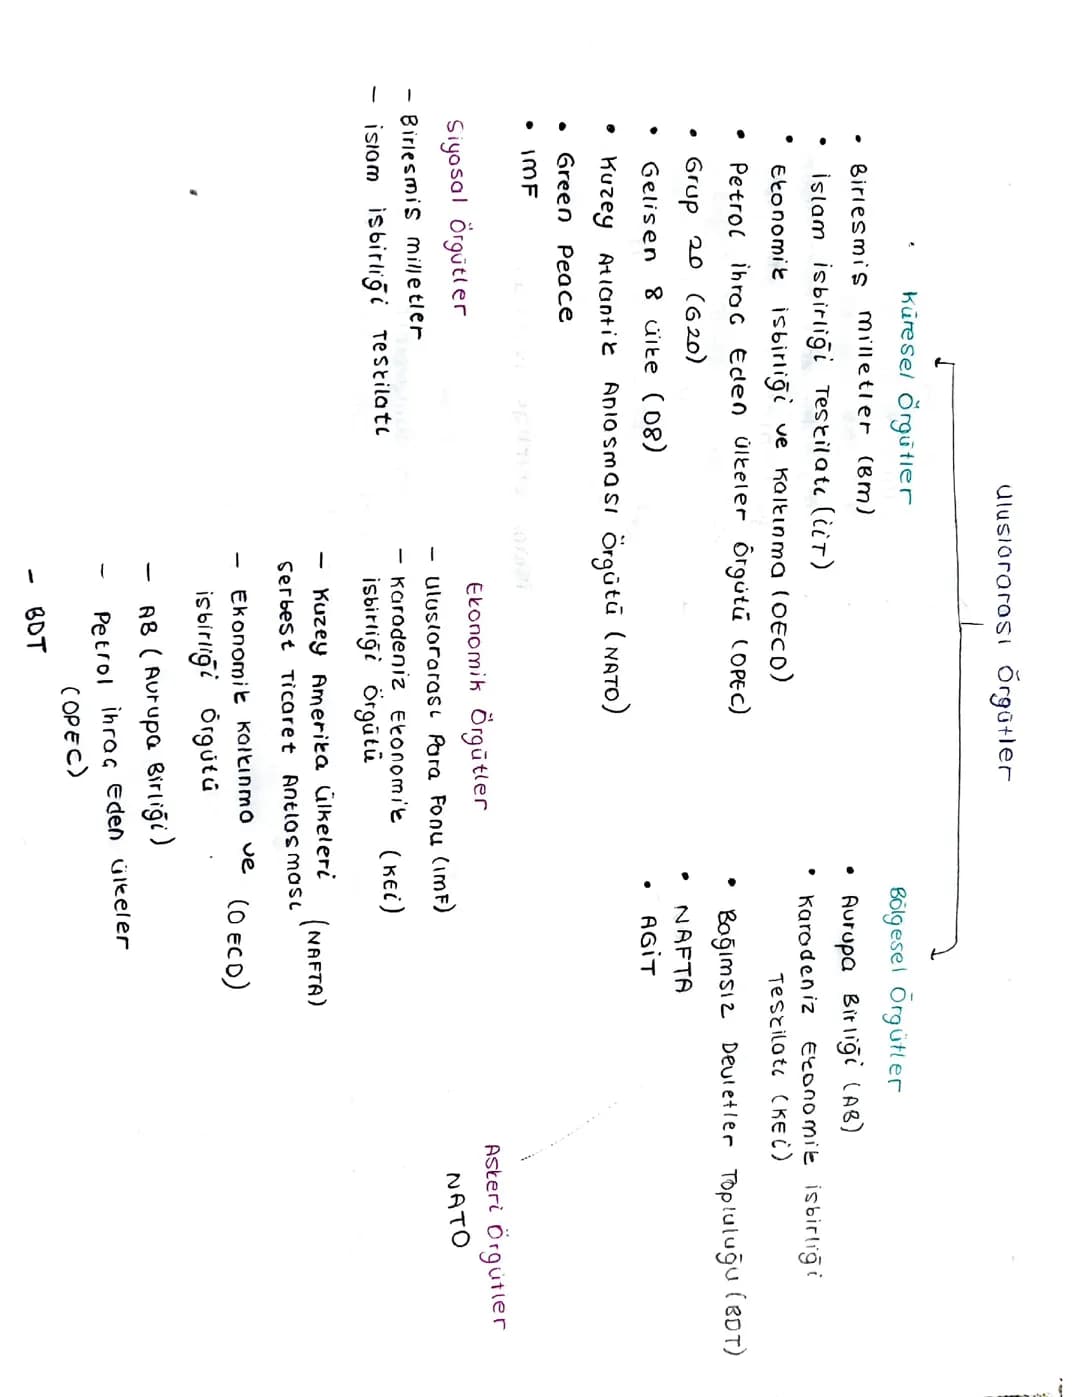 Uluslararası Örgütler
Küresel Örgütler
• Birlesmis milletler (BM)
• İslam isbirliği Teskilatı (İİT)
• Ekonomik isbirliği ve Kalkınma (OECD)
• Petrol ihrac Eden ülkeler Örgütü (OPEC)
• Grup 20 (G20)
• Gelisen 8 ülke (D8)
• Kuzey Atlantik Anlasması Örgütü (NATO)
• Green Peace
• IMF
Bölgesel Örgütler
• Avrupa Birliği (AB)
• Karadeniz Ekonomik isbirliği
Teskilatı (KEİ)
• Bağımsız Devletler Topluluğu (BDT)
• NAFTA
• AGİT
Siyasal Örgütler
- Birlesmis milletler
- islam isbirliği Teskilatı
Ekonomik Örgütler
- Uluslararası Para Fonu (IMF)
- Karadeniz Ekonomik (KEİ)
isbirliği Örgütü
- Kuzey Amerika ülkeleri (NAFTA)
Serbest Ticaret Antlasması
- Ekonomik Kalkınma ve (OECD)
isbirliği Örgütü
- AB (Avrupa Birliği)
- Petrol ihraç Eden ülkeler
(OPEC)
- BDT
Askeri Örgütler
NATO